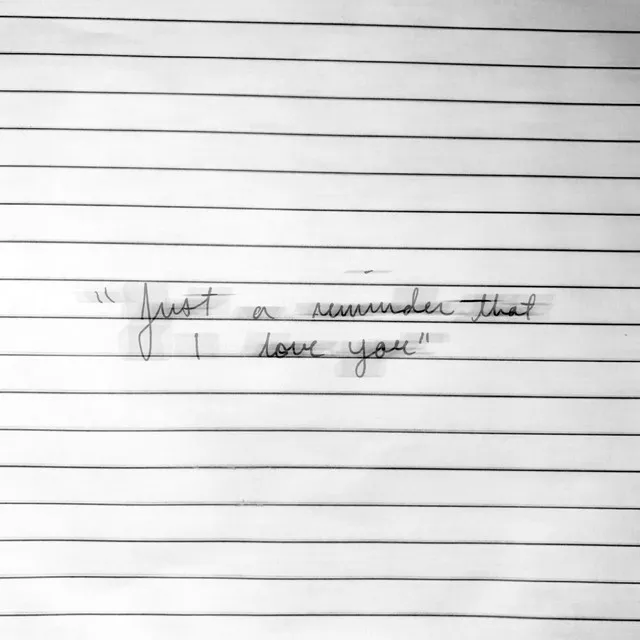 "Just a reminder that
I love you"